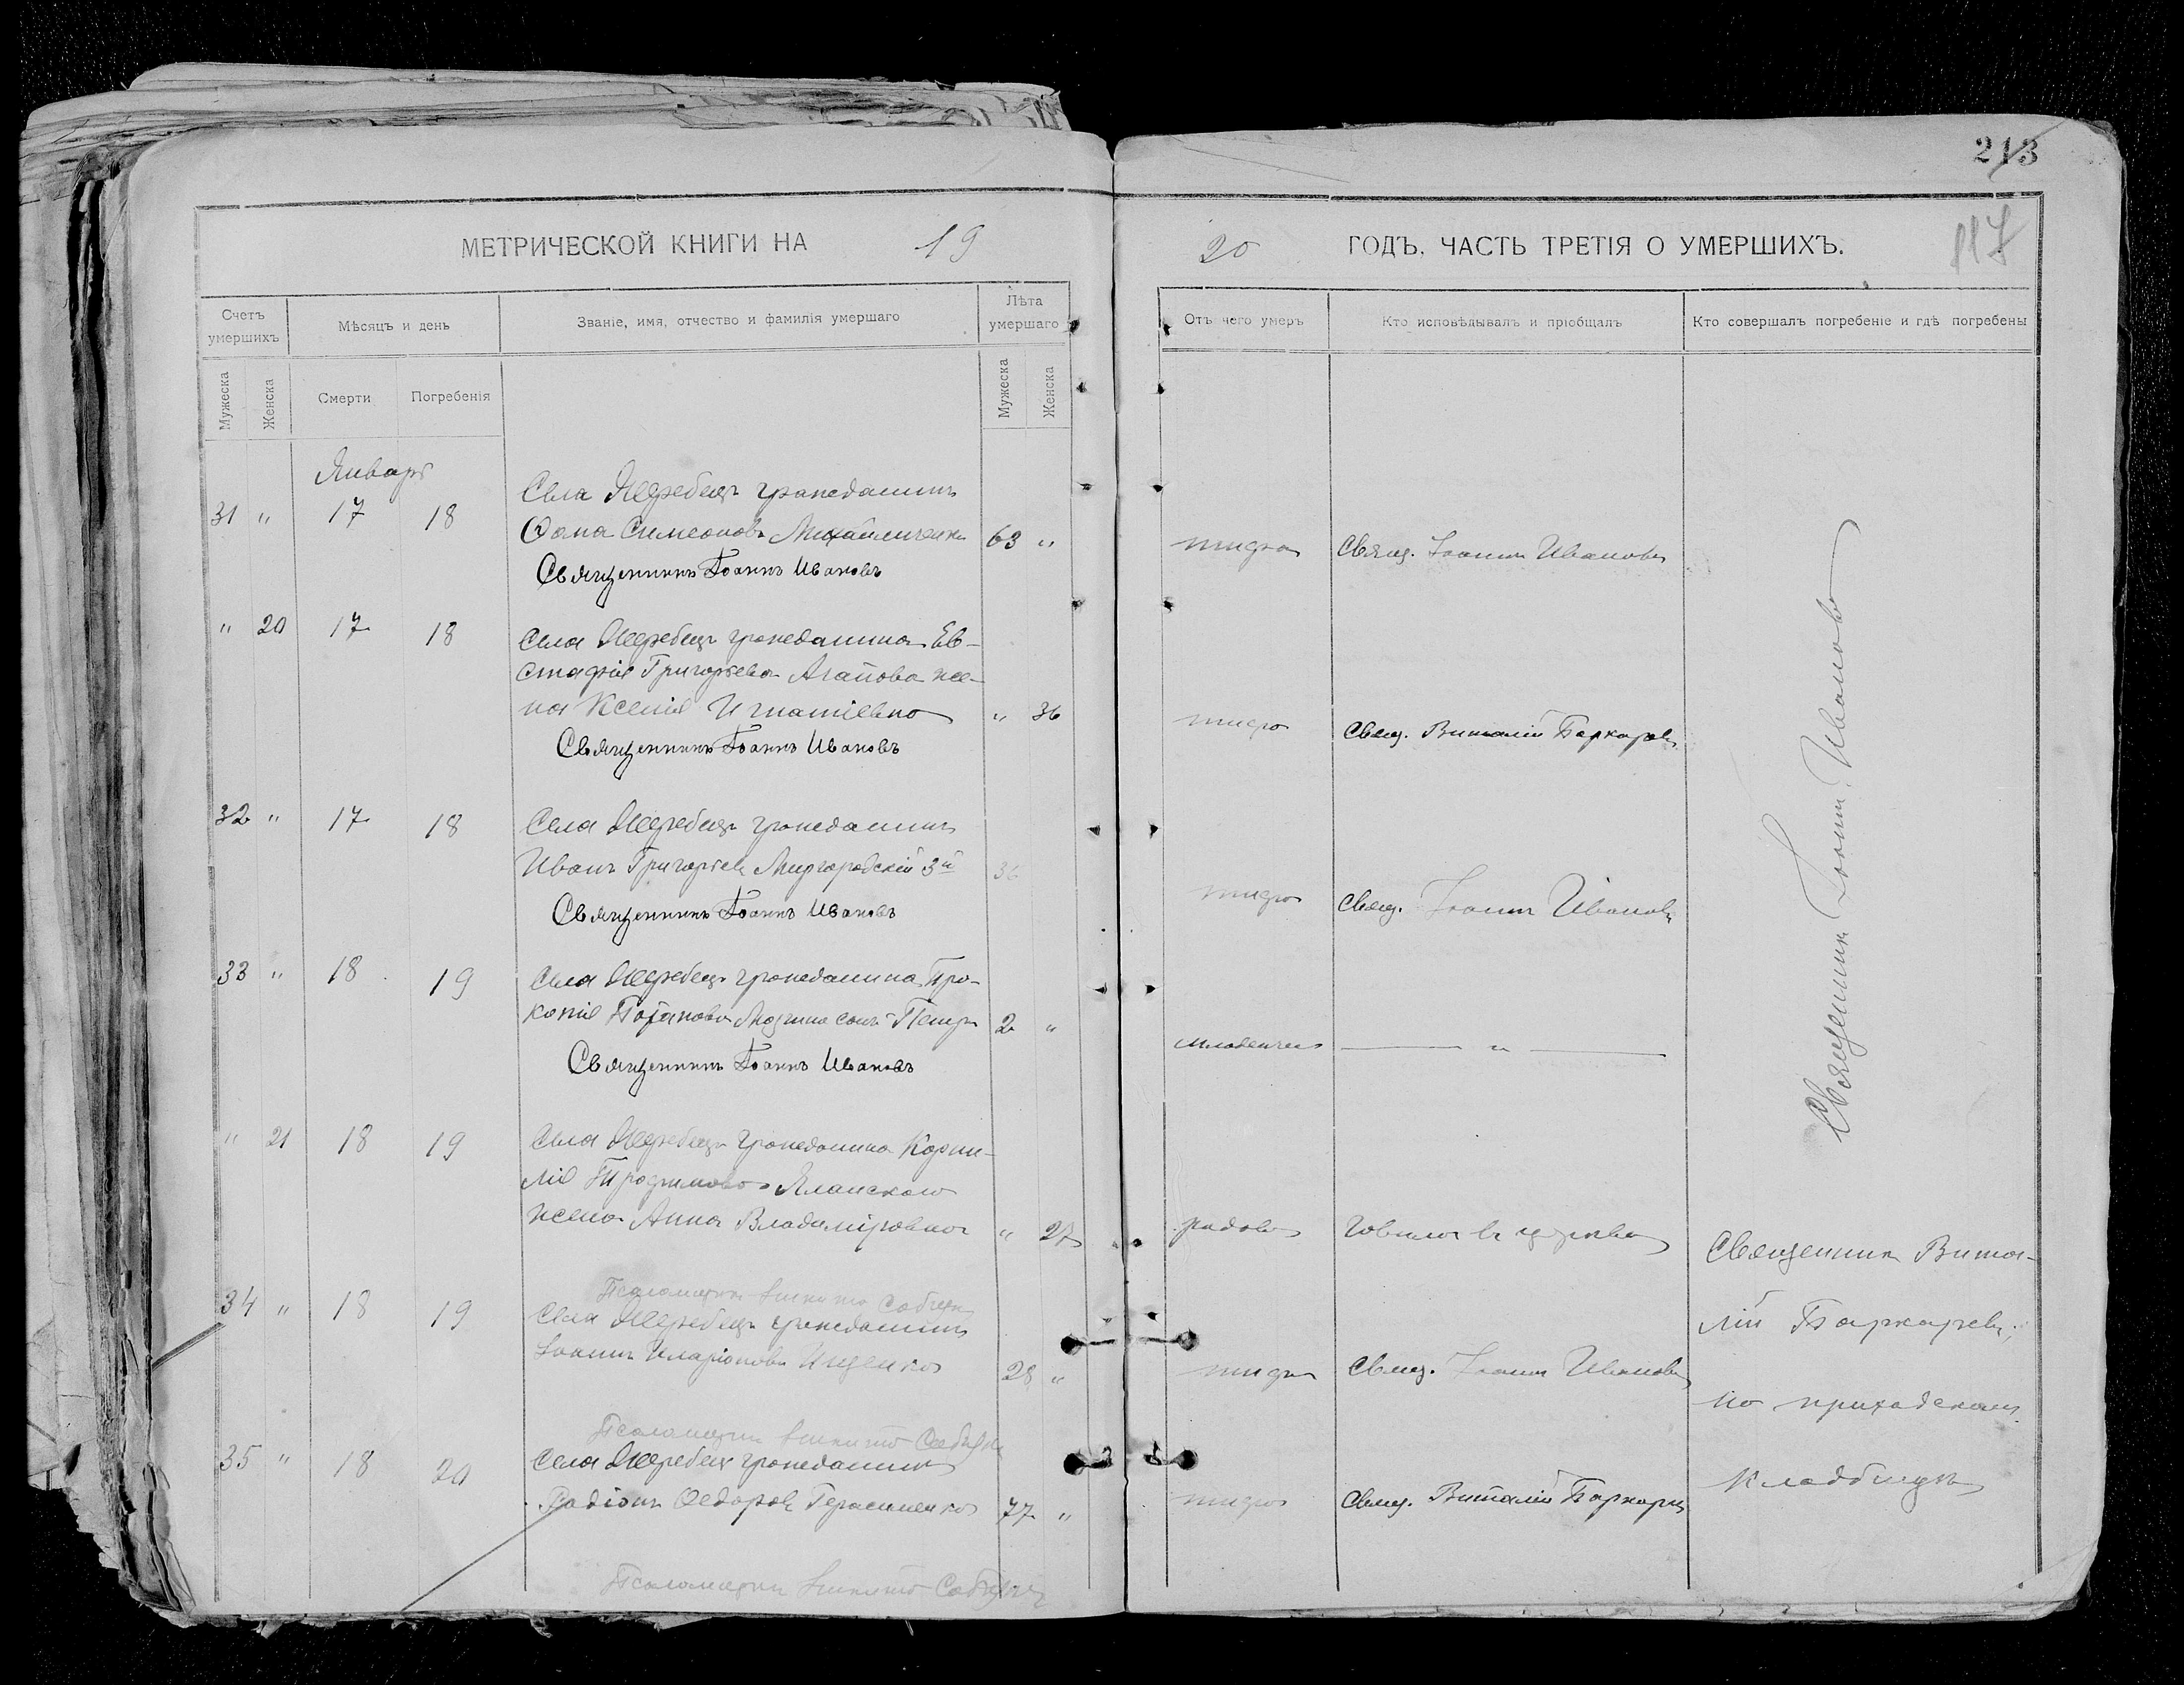 213
117
МЕТРИЧЕСКОЙ КНИГИ НА 19
20 ГОДЪ, ЧАСТЬ ТРЕТІЯ О УМЕРШИХЪ.
Счетъ умершихъ
Мѣсяцъ и день
Званіе, имя, отчество и фамилія умершаго
Лѣта умершаго
Отъ чего умеръ
Кто исповѣдывалъ и пріобщалъ
Кто совершалъ погребеніе и гдѣ погребены
Мужеска
Женска
Смерти
Погребенія
Мужеска
Женска
Январь
31 " 17 18
Села Жеребецъ гражданинъ
Ѳома Симеоновъ Михайличенко 63 "
тифа
Свящ. Іоаннъ Ивановъ
Священникъ Іоаннъ Ивановъ
" 20 17 18
Села Жеребецъ гражданина Ев-
стафія Григорьева Агапова же-
на Ксенія Игнатіевна " 36
тифа
Свящ. Виталій
Священникъ Іоаннъ Ивановъ
32 " 17 18
Села Жеребецъ гражданинъ
Иванъ Григорьев Миргородскій 3й 36
тифа
Свящ. Іоаннъ Ивановъ
Священникъ Іоаннъ Ивановъ
33 " 18 19
Села Жеребецъ гражданина Про-
копія сынъ Петръ 2 "
— " —
Священникъ Іоаннъ Ивановъ
" 21 18 19
Села Жеребецъ гражданина Корни-
лія Трофимова
жена Анна Владиміровна " 27
родовъ
Говѣла въ церкви
Псаломщикъ
34 " 18 19
Села Жеребецъ гражданинъ
Іоаннъ Иларіоновъ Ищенко 28 "
тифа
Свящ. Іоаннъ Ивановъ
Псаломщикъ
35 " 18 20
Села Жеребецъ гражданинъ
Родіонъ Ѳедоровъ Герасименко 77 "
тифа
Свящ. Виталій
Псаломщикъ
Священникъ Іоаннъ Ивановъ
Священникъ Вита-
лій
на приходскомъ
кладбищѣ